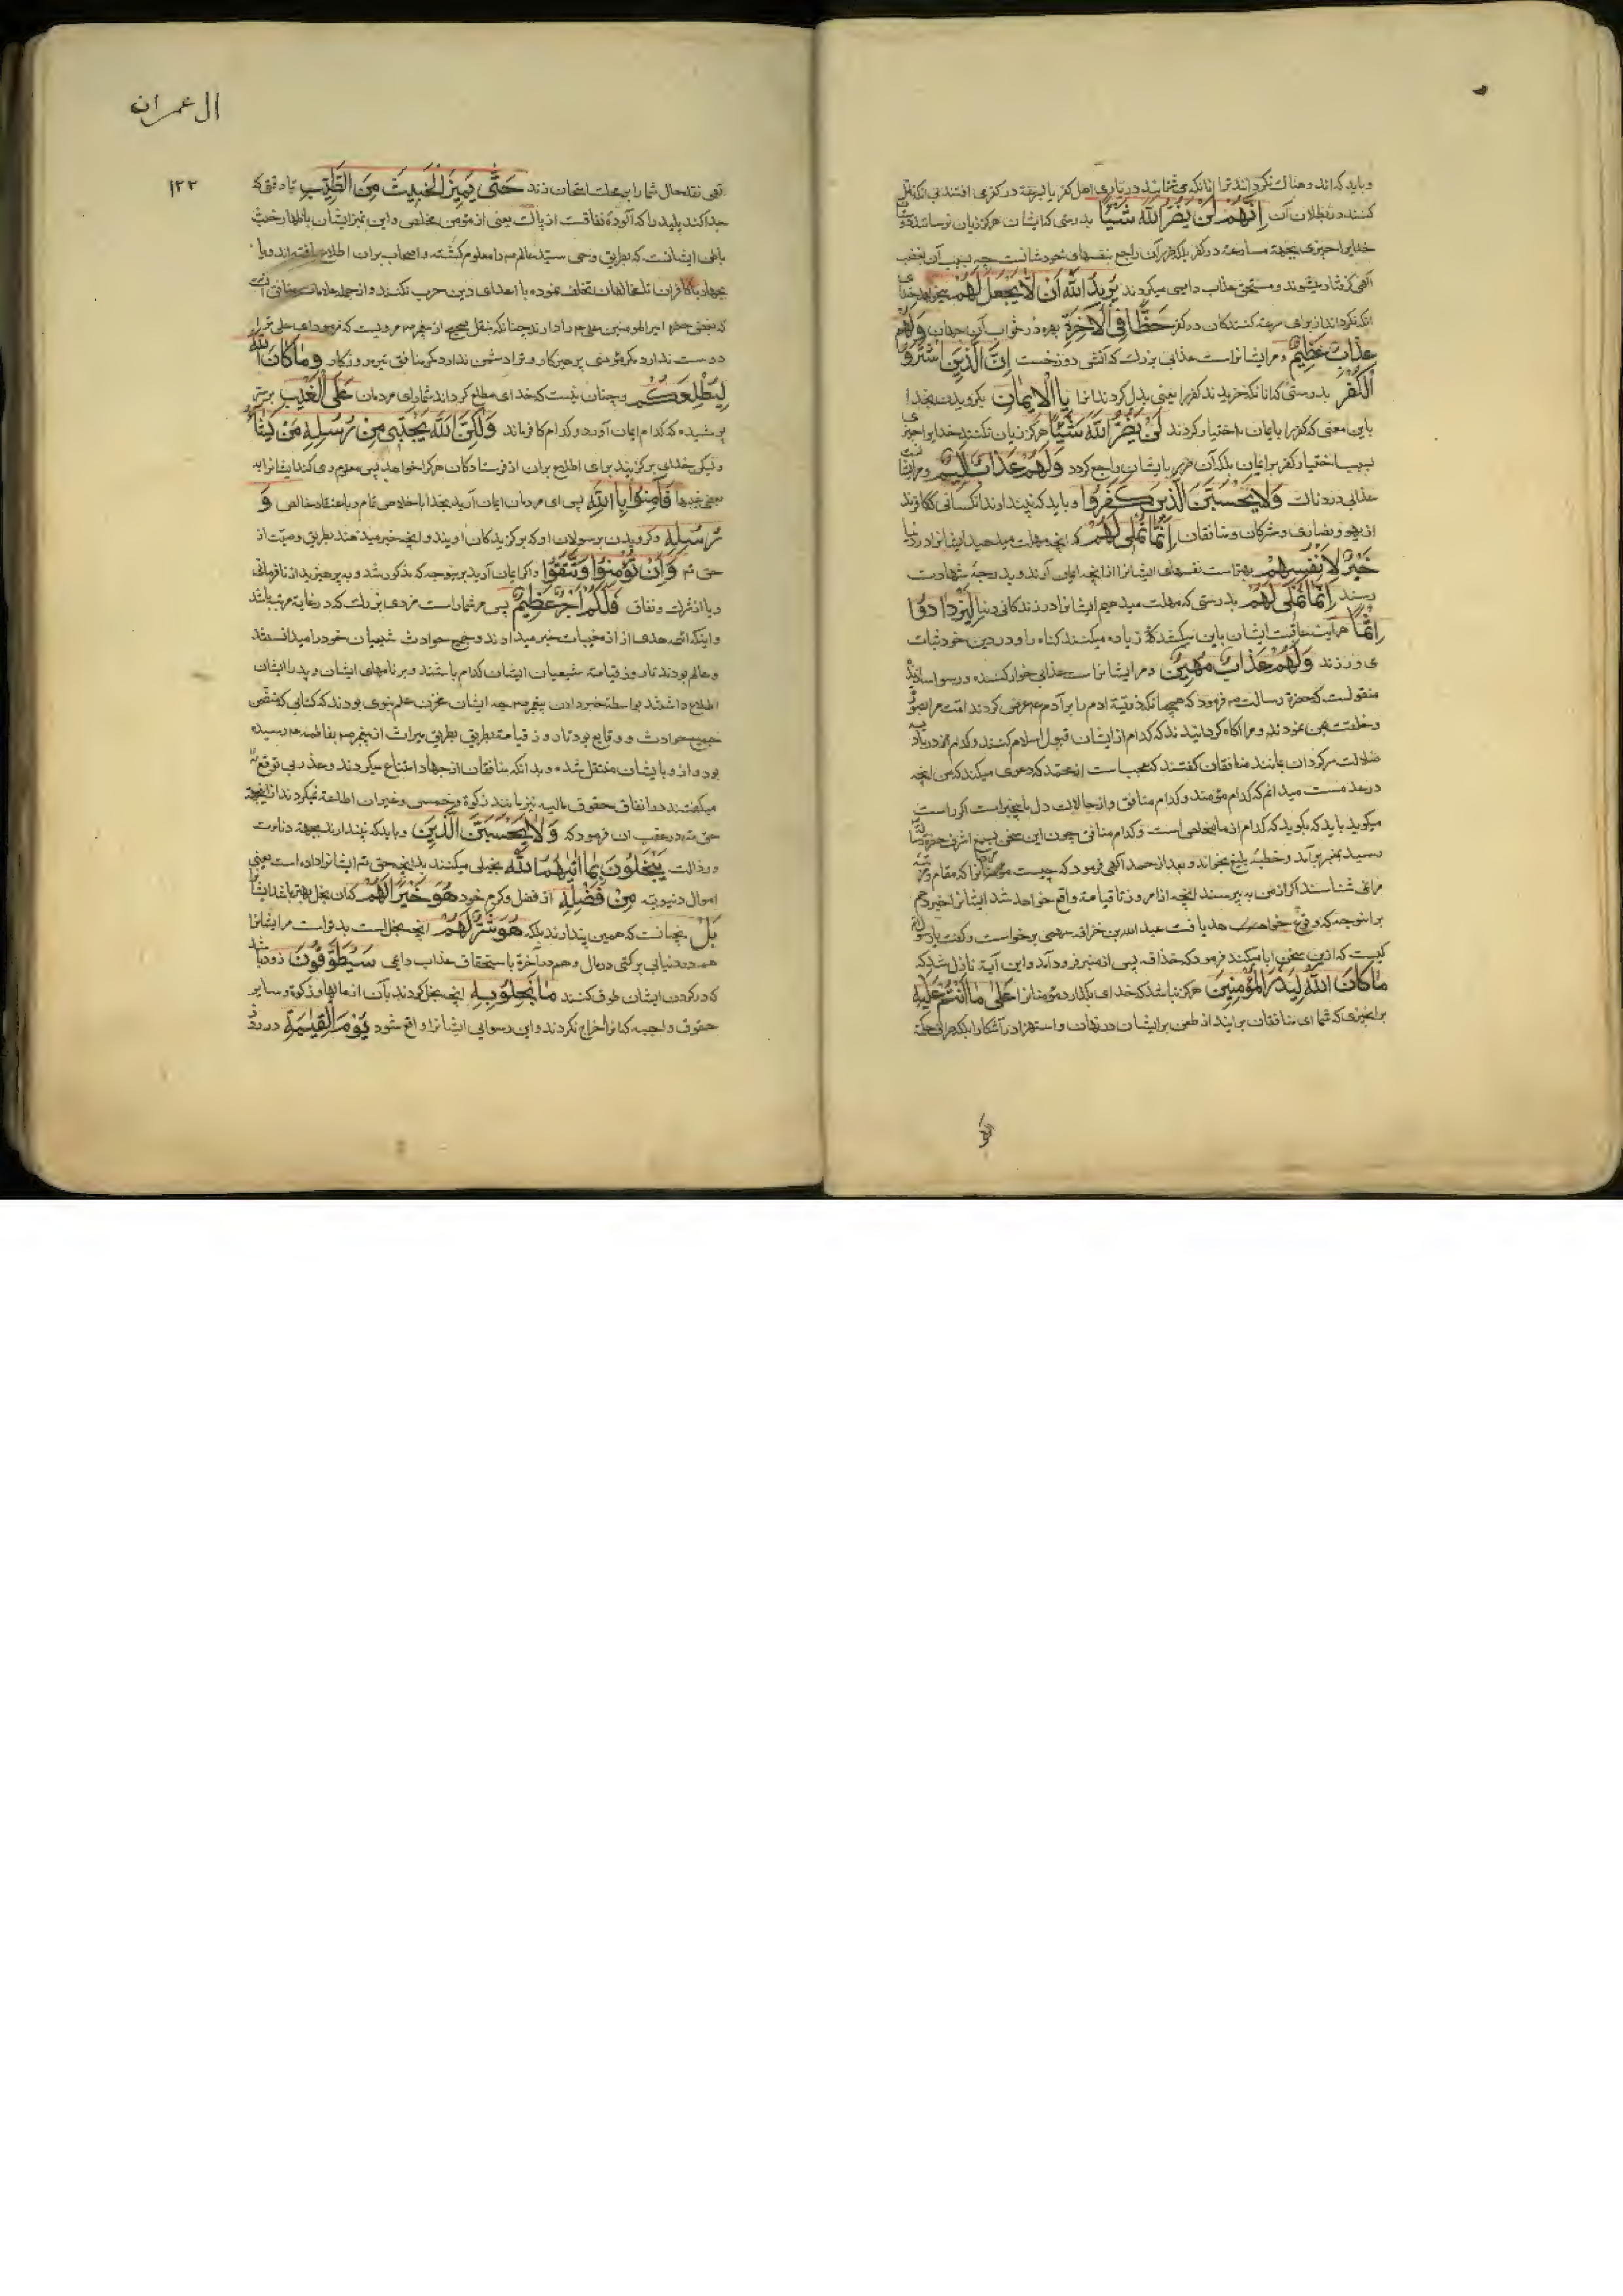 و باید که اندوهناك نكرداند ترا انانكه مى شتابند در يارى اهل كفر يا بسرعة در كفر مى افتند
كنند در بطلان آن اِنَّهُمْ لَنْ يَضُرُّوا اللّٰهَ شَيْئًا بدرستى كه ايشان هركز زيان نرسانند
خدايرا چيزى بجهة مسارعة در كفر بلكه ضرر آن راجع بنفسهاى خودشانست چه بسبب آن بغضب
آلهى كرفتار ميشوند و مستحق عذاب دايمى ميكردند يُرِيدُ اللّٰهُ اَنْ لَا يَجْعَلَ لَهُمْ ميخواهد خداى
انكه نكرداند از براى سرعة كنندكان در كفر حَظًّا فِي الْاٰخِرَةِ بهره در ثواب آن جهان وَلَهُمْ
عَذَابٌ عَظِيمٌ و مر ايشانراست عذابى بزرك كه آتش دوزخست اِنَّ الَّذِينَ اشْتَرَوُا
الْكُفْرَ بدرستى كه انانكه خريدند كفر را يعنى بدل كردند انرا بِالْاِيمَانِ بكرويدن بخدا
باين معنى كه كفر را بايمان اختيار كردند لَنْ يَضُرُّوا اللّٰهَ شَيْئًا هركز زيان نكنند خدايرا چيزى
بسبب اختيار كفر بر ايمان بلكه آن ضرر بايشان راجع كردد وَلَهُمْ عَذَابٌ اَلِيمٌ و مر ايشانراست
عذابى دردناك وَلَا يَحْسَبَنَّ الَّذِينَ كَفَرُوا و بايد كه نپندارند انكسانى كه كافرند
از يهود و نصارى و مشركان و منافقان اَنَّمَا نُمْلِي لَهُمْ كه انچه مهلت ميدهيم ايشانرا در دنيا
خَيْرٌ لِاَنْفُسِهِمْ بهتر است نفسهاى ايشانرا از انچه ايمان آرند و بدرجهٔ شهادت
رسند اِنَّمَا نُمْلِي لَهُمْ بدرستى كه مهلت ميدهيم ايشانرا در زندكانى دنيا لِيَزْدَادُوا
اِثْمًا عاقبت ايشان باين ميكشد كه زياده ميكنند كناه را و در دين خود ثبات
مى ورزند وَلَهُمْ عَذَابٌ مُهِينٌ و مر ايشانراست عذابى خوار كننده و رسوا سازنده
منقولست كه حضرة رسالت ص فرمود كه همچنانكه ذريّة ادم را بر آدم ع عرض كردند امت مرا بصورة
و خلقت بمن نمودند و مرا اكاه كردانيدند كه كدام از ايشان قبول اسلام كنند و كدام در باديه
ضلالت سركردان بمانند منافقان كفتند كه عجب است از محمد كه دعوى ميكند كه من انچه
ميدانم كه كدام مؤمنند و كدام منافق و از حالات دل ما بيخبر است اكر راست
ميكويد بايد كه بكويد كه كدام از ما مخلص است و كدام منافق چون اين سخن بسمع اشرف حضرة
رسيد بمنبر برآمد و خطبهٔ بليغ بخواند و بعد از حمد آلهى فرمود كه چيست كه مقام و مرتبه
مرا نمى شناسند اكر از من بپرسند انچه از امروز تا قيامة واقع خواهد شد ايشانرا خبر دهم
برانوجهه كه وقوع خواهد يافت عبد الله بن حذافه سهمى برخواست و كفت يا رسول الله
كيست كه ازين سخن ابا ميكند فرمود كه حذافه پس از منبر فرود آمد و اين آية نازل شد كه
مَا كَانَ اللّٰهُ لِيَذَرَ الْمُؤْمِنِينَ هركز نباشد كه خداى بكذارد مؤمنانرا عَلٰى مَا اَنْتُمْ عَلَيْهِ
بر انچيزى كه شما اى منافقان برانيد از طعن بر ايشان در نهان و استهزا در آشكارا بلكه
ال عمران
١٢٢
نقد حال شما را بمحك امتحان زند حَتّٰى يَمِيزَ الْخَبِيثَ مِنَ الطَّيِّبِ تا وقتى كه
جدا كند پليد را كه آلودهٔ نفاقست از پاك يعنى از مؤمن مخلص و اين تميز ايشان باظهار خبث
باطن ايشانست كه بطريق وحى سيّد عالم ص را معلوم كشته و اصحاب بران اطلاع يافته اند و يا
بجهاد با كافران تا مخالفان تخلف نموده با اعداى دين حرب نكنند و از جمله علامات منافق آنست
كه بغض حضرة امير المومنين على ع را دارند چنانكه بنقل صحيح از پيغمبر ص مرويست كه فرمود اى على ترا
دوست ندارد مكر مؤمنى پرهيزكار و ترا دشمن ندارد مكر منافق تيره روزكار وَمَا كَانَ اللّٰهُ
لِيُطْلِعَكُمْ و چنان نيست كه خداى مطلع كرداند شما را اى مردمان عَلَى الْغَيْبِ بر سرّ
پوشيده كه كدام ايمان آورد و كدام كافر ماند وَلٰكِنَّ اللّٰهَ يَجْتَبِي مِنْ رُسُلِهِ مَنْ يَشَاءُ
و ليكن خداى بركزيند براى اطلاع بران از فرستادكان هر كرا خواهد پس معلوم مى كند ايشانرا به
بعضى غيبها فَاٰمِنُوا بِاللّٰهِ پس اى مردمان ايمان آريد بخدا باخلاص تمام و باعتقاد خالص وَ
رُسُلِهِ و كرويدن برسولان او كه بركزيدكان اويند و انچه خبر ميدهند بطريق وحيست از
حق تع وَاِنْ تُؤْمِنُوا وَتَتَّقُوا و اكر ايمان آريد بر نوجه كه مذكور شد و بپرهيزيد از نافرمانى
و يا از شرك و نفاق فَلَكُمْ اَجْرٌ عَظِيمٌ پس مر شما راست مزدى بزرك كه در غاية مرتبه باشد
و اينكه ائمه هدى از مغيبات خبر ميدادند و جميع حوادث شيعيان خود را ميدانستند
و عالم بودند تا روز قيامة شيعيان ايشان كدام باشند و بر نامهاى ايشان و پدر ايشان
اطلاع داشتند بواسطهٔ خبر دادن پيغمبر ص چه ايشان مخزن علم نبوى بودند كه كتابى كه متضمن
جميع حوادث و وقايع بود تا روز قيامة بطريق ميراث از پيغمبر ص بفاطمه ع رسيده
بود و ازو بايشان منتقل شده و بدانكه منافقان از جهاد امتناع ميكردند و عذر بى توقع
ميكفتند در انفاق حقوق ماليه نيز مانند زكوة و خمس و غير ان اطاعة نميكردند ازينجهة
حق تع در عقب ان فرمود كه وَلَا يَحْسَبَنَّ الَّذِينَ و بايد كه نپندارند بجهة دنائت
و رذالت يَبْخَلُونَ بِمَا اٰتٰيهُمُ اللّٰهُ بخيلى ميكنند بدانچه حق تع ايشانرا داده است يعنى
اموال دنيويه مِنْ فَضْلِهِ از فضل و كرم خود هُوَ خَيْرًا لَهُمْ كمان بخل بهتر باشد ايشانرا
بَلْ نچنانست كه همين پندارند بلكه هُوَ شَرٌّ لَهُمْ انچه بخل است بدتر است مر ايشانرا
هم در دنيا بى بركتى در مال و هم در آخرة باستحقاق عذاب دايمى سَيُطَوَّقُونَ زود باشد
كه در كردن ايشان طوق كنند مَا بَخِلُوا بِهِ انچه بخل كردند بآن از مالها و زكوة و ساير
حقوق واجبه كه انرا اخراج نكردند و اين رسوايى ايشانرا واقع شود يَوْمَ الْقِيٰمَةِ در روز